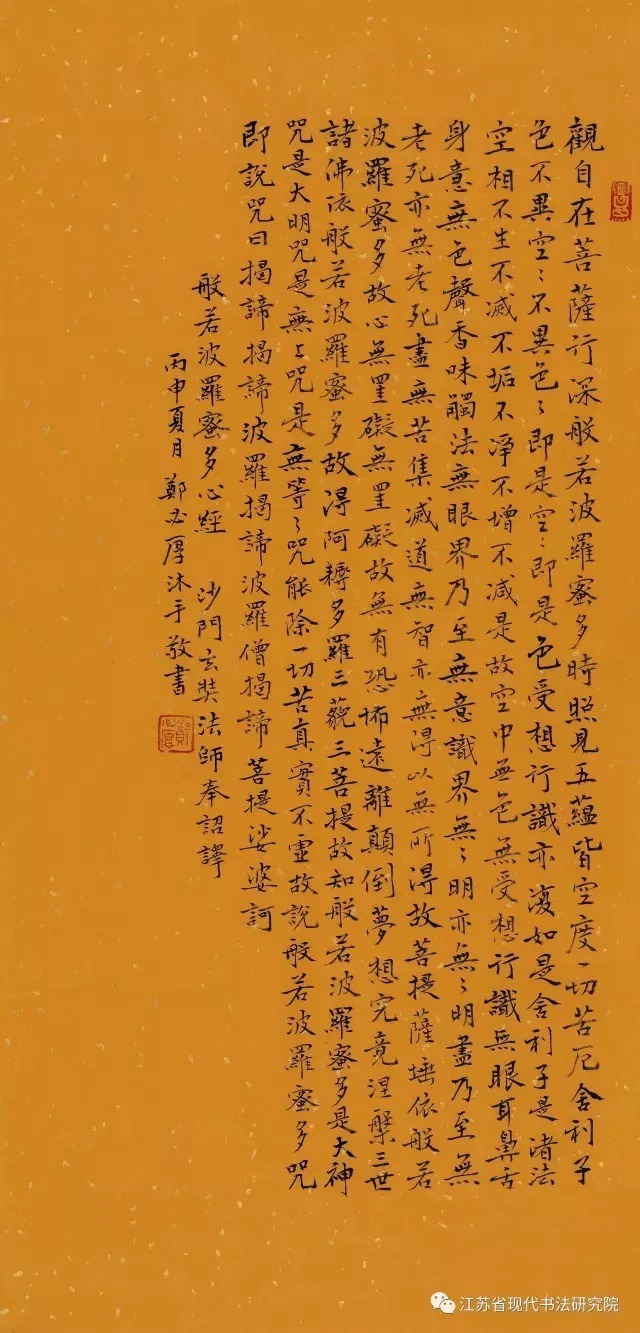 觀自在菩薩行深般若波羅蜜多時照見五蘊皆空度一切苦厄舍利子
色不異空〻不異色〻即是空〻即是色受想行識亦復如是舍利子是諸法
空相不生不滅不垢不淨不增不減是故空中無色無受想行識無眼耳鼻舌
身意無色聲香味觸法無眼界乃至無意識界無〻明亦無〻明盡乃至無
老死亦無老死盡無苦集滅道無智亦無得以無所得故菩提薩埵依般若
波羅蜜多故心無罣礙無罣礙故無有恐怖遠離顛倒夢想究竟涅槃三世
諸佛依般若波羅蜜多故得阿耨多羅三藐三菩提故知般若波羅蜜多是大神
咒是大明咒是無上咒是無等〻咒能除一切苦真實不虛故說般若波羅蜜多咒
即說咒曰揭諦揭諦波羅揭諦波羅僧揭諦菩提娑婆訶
般若波羅蜜多心經 沙門玄奘法師奉詔譯
丙申夏月鄭必厚沐手敬書
江苏省现代书法研究院